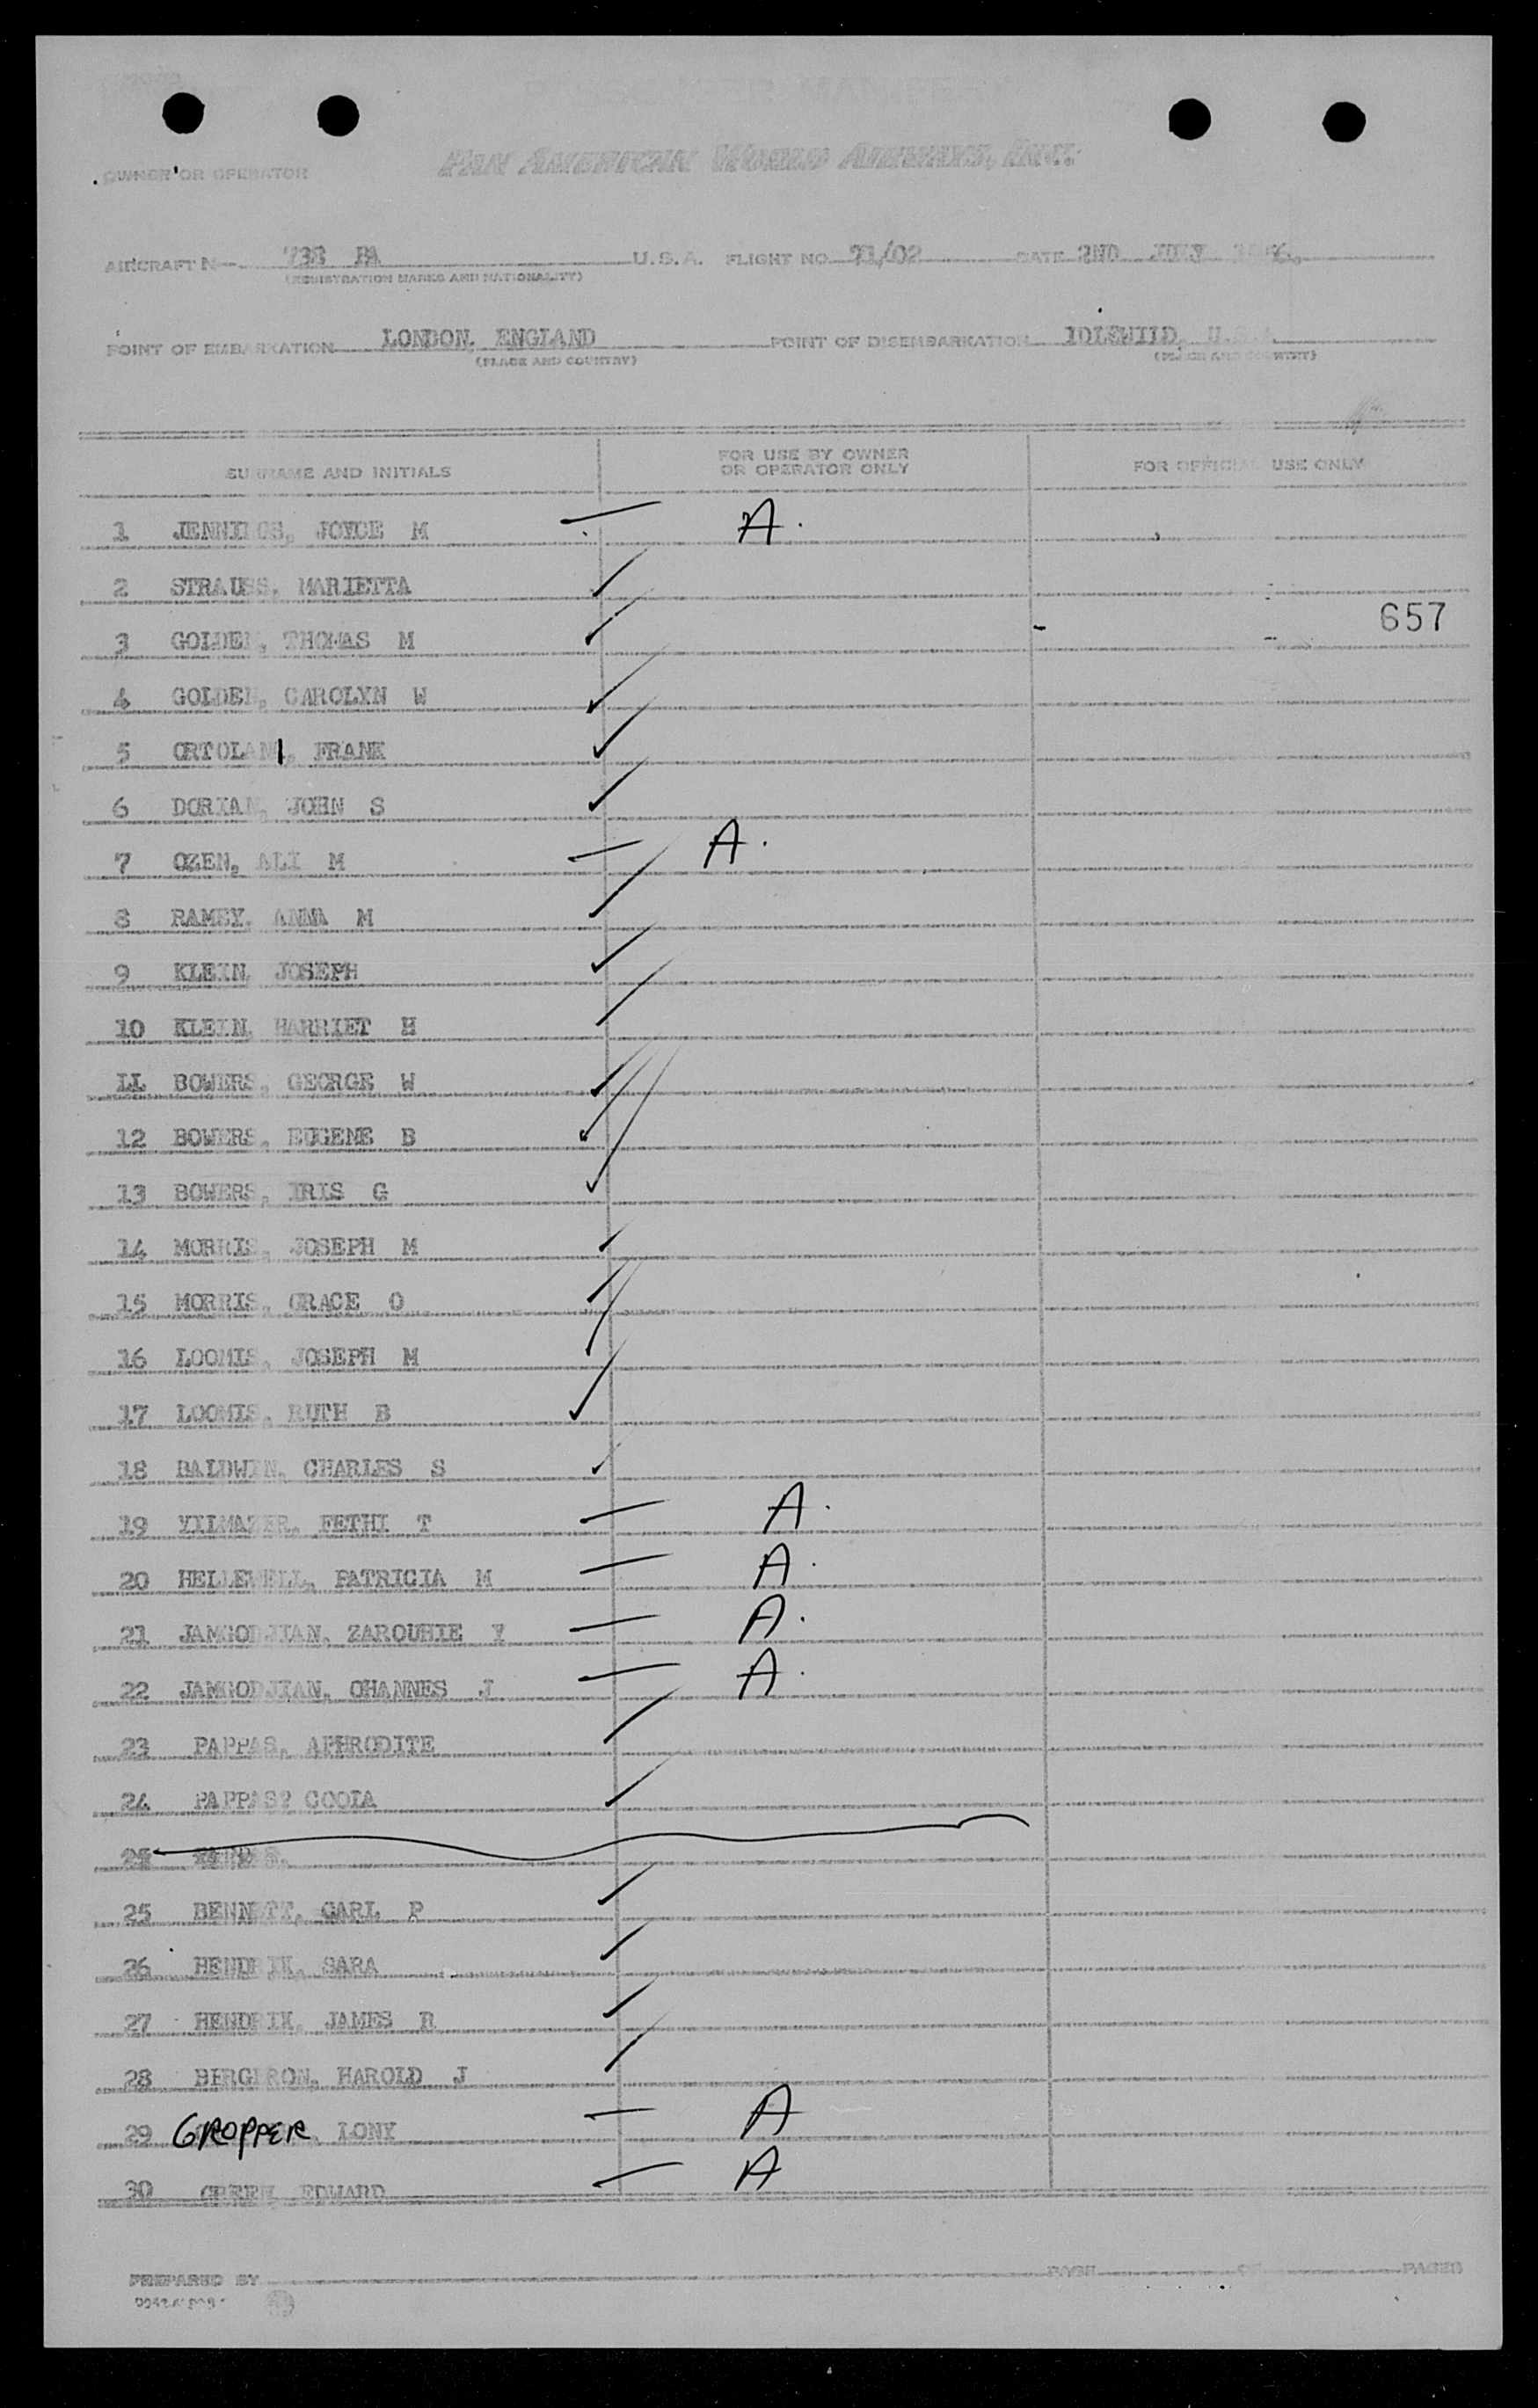 PASSENGER MANIFEST
OWNER OR OPERATOR PAN AMERICAN WORLD AIRWAYS, INC.
AIRCRAFT N 738 PA U.S.A. FLIGHT NO. 71/02 DATE 2ND JULY
(REGISTRATION MARKS AND NATIONALITY)
POINT OF EMBARKATION LONDON, ENGLAND POINT OF DISEMBARKATION IDLEWILD, U.S.A.
(PLACE AND COUNTRY) (PLACE AND COUNTRY)
SURNAME AND INITIALS FOR USE BY OWNER OR OPERATOR ONLY FOR OFFICIAL USE ONLY
1 JENNINGS, JOYCE M — A.
2 STRAUSS, MARIETTA ✓
657
3 GOLDEN, THOMAS M ✓
4 GOLDEN, CAROLYN W ✓
5 ORTOLANI, FRANK ✓
6 DORIAN, JOHN S ✓
7 OZEN, ALI M — A.
8 RAMEY, ANNA M ✓
9 KLEIN, JOSEPH ✓
10 KLEIN, HARRIET H ✓
11 BOWERS, GEORGE W ✓
12 BOWERS, EUGENE B ✓
13 BOWERS, IRIS G ✓
14 MORRIS, JOSEPH M ✓
15 MORRIS, GRACE O ✓
16 LOOMIS, JOSEPH M ✓
17 LOOMIS, RUTH B ✓
18 BALDWIN, CHARLES S ✓
19 YILMAZER, FETHI T — A.
20 HELLEWELL, PATRICIA M — A.
21 JAMGODJIAN, ZAROUHIE Y — A.
22 JAMGODJIAN, OHANNES J — A.
23 PAPPAS, APHRODITE ✓
24 PAPPAS? COOLA ✓
25 BENNETT, CARL P ✓
26 HENDRIX, SARA ✓
27 HENDRIX, JAMES R ✓
28 BERGERON, HAROLD J ✓
29 GROPPER, LONY — A
30 GREEN, EDWARD — A
PREPARED BY PAGE OF PAGES